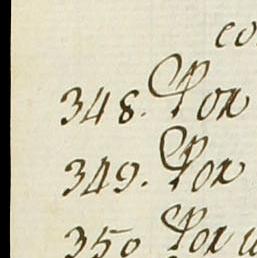 co
348. Por
349. Por
350 Por u